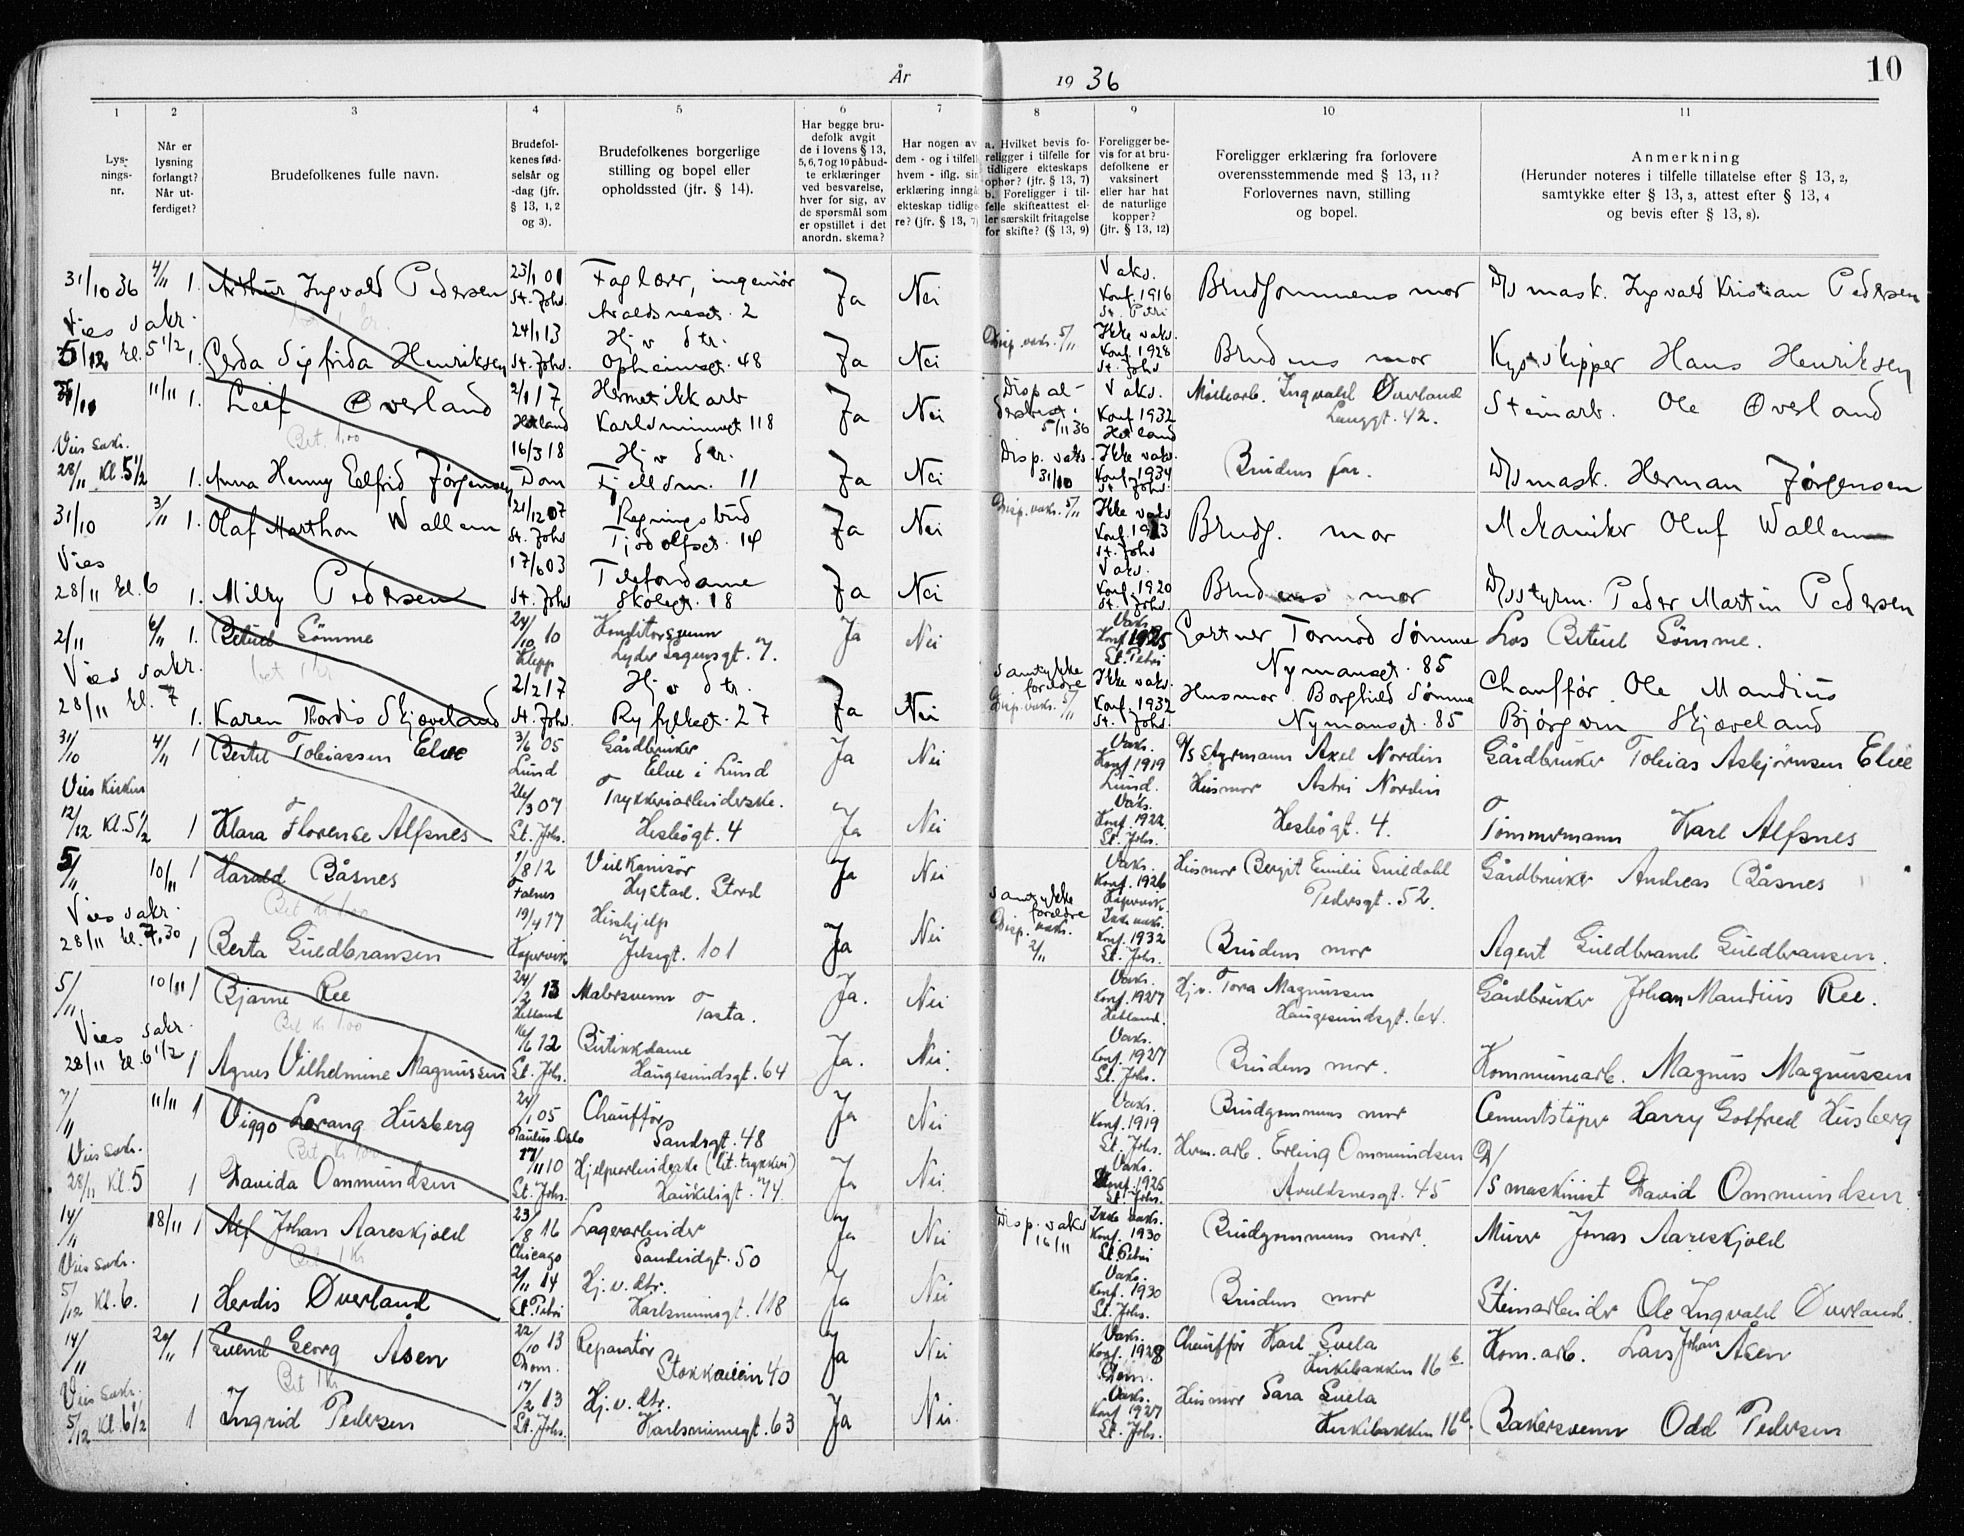 År 1936
10
1 2 3 4 5 6 7 8 9 10 11
Lys-
nings-
nr.
Når er
lysning
forlangt?
Når ut-
ferdiget?
Brudefolkenes fulle navn.
Brudefol-
kenes fød-
selsår og
-dag (jfr.
§ 13, 1, 2
og 3).
Brudefolkenes borgerlige
stilling og bopel eller
opholdssted (jfr. § 14).
Har begge bru-
defolk avgit
de i lovens § 13,
5, 6, 7 og 10 påbud-
te erklæringer
ved besvarelse,
hver for sig, av
de spørsmål som
er opstillet i det
anordn. skema?
Har nogen av
dem - og i tilfelle
hvem - iflg. sin
erklæring inngå
ekteskap tidlige-
re? (jfr. § 13, 7)
a. Hvilket bevis fo-
religger i tilfelle for
tidligere ekteskaps
ophør? (jfr. § 13, 7)
b. Foreligger i til-
felle skifteattest el-
ler særskilt fritagelse
for skifte? (§ 13, 9)
Foreligger be-
vis for at bru-
defolkene er
vaksinert
eller har hat
de naturlige
kopper?
(jfr. § 13, 12)
Foreligger erklæring fra forlovere
overensstemmende med § 13, 11?
Forlovernes navn, stilling
og bopel.
Anmerkning
(Herunder noteres i tilfelle tillatelse efter § 13, 2,
samtykke efter § 13, 3, attest efter § 13, 4
og bevis efter § 13, 8).
31/10 36 4/11 1. Arthur Ingvald Pedersen 23/1 01 St. Johs. Faglærer, ingeniør Avaldsnesgt. 2 Ja Nei Vaks. Konf. 1916 St. Petri Brudgommens mor D/s mask. Ingvald Kristian Pedersen
Vies sakr.
5/12 kl. 5 1/2 1. Gerda Sigfrida Henriksen 24/1 13 St. Johs. Hj v dtr. Opheimsgt. 48 Ja Nei Disp. vaks. 5/11 Ikke vaks. Konf. 1928 St. Johs Brudens mor Kystskipper Hans Henriksen
11/11 1. Leif Øverland 2/1 17 Hetland Hermetikkarb Karlsminnegt 118 Ja Nei Disp al- 5/11 36 Vaks. Konf. 1932 Hetland Ingvald Øverland Langgt. 42. Steinarb. Ole Øverland
Bet. 1.00
Vies sakr.
28/11 Kl. 5 1/2 1. Anna Henny Elfrid Jørgensen 16/3 18 Dom Hj v dtr. Fjelldsn. 11 Ja Nei Disp. vaks. 31/10 Ikke vaks. Konf. 1934 St. Johs. Brudens far. D/s mask. Herman Jørgensen
31/10 3/11 1. Olaf Marthon Wallem 21/12 07 St. Johs Regningsbud Tjodolfsgt. 14 Ja Nei Disp. vaks. 5/11 Ikke vaks Konf. 1923 St. Johs Brudg. mor Mekaniker Oluf Wallem
Vies
28/11 kl. 6 1. Milry Pedersen 17/6 03 St. Johs Telefondame Skolegt. 18 Ja Nei Vaks. Konf. 1920 St. Johs Brudens mor D/s styrm. Peder Martin Pedersen
2/11 6/11 1. Betuel Sømme 24/10 10 Klepp Konditorsvenn Lyder Sagensgt. 7. Ja Nei Vaks. Konf. 1925 St. Petri Gartner Tormod Sømme Nymansgt. 85 Los Betuel Sømme.
bet 1 kr
Vies sakr.
28/11 kl. 7 1. Karen Thordis Skjæveland 2/2 17 St. Johs. Hj v dtr. Ryfylkegt. 27 Ja Nei Samtykke foreldre Disp. vaks. 5/11 Ikke vaks. Konf. 1932 St. Johs. Husmor Borghild Sømme Nymansgt. 85 Chauffør Ole Mandius Bjørgvin Skjæveland
31/10 4/11 1 Bertil Tobiassen Elve 3/6 05 Lund Gårdbruker Elve i Lund Ja Nei Vaks. Konf. 1919 Lund. D/s styrmann Axel Nordin Husmor Astri Nordin Gårdbruker Tobias Asbjørnsen Elve
Vies Kirken
12/12 Kl. 5 1/2 1 Klara Florense Alfsnes 26/3 07 St. Johs. Trykkeriarbeiderske. Hesbøgt. 4 Ja Nei Vaks. Konf. 1922. St. Johs. Hesbøgt. 4. Tømmermann Karl Alfsnes
5/11 10/11 1 Harald Båsnes 1/8 12 Falnes Vulkanisør Hystad. Stord Ja Nei Vaks. Konf. 1926 Kopervik. Husmor Bergit Emilie Guldahl Pedersgt. 52. Gårdbruker Andreas Båsnes
Bet Kr 1.00
Vies sakr.
28/11 kl. 7.30 1 Berta Guldbransen 19/4 17 Kopervik Hushjelp Jelsegt. 101 Ja Nei Samtykke foreldre Disp. vaks. 2/11 Ikke vaks. Konf. 1932 St. Johs. Brudens mor Agent Guldbrand Guldbransen.
5/11 10/11 1 Bjarne Ree 24/2 13 Hetland Malersvenn Tasta. Ja. Nei Vaks. Konf. 1927 Hetland. Hj.v. Tora Magnussen Haugesundsgt. 64. Gårdbruker Johan Mandius Ree.
Bet Kr 1.00
Vies sakr.
28/11 kl. 6 1/2 1 Agnes Vilhelmine Magnussen 16/6 12 St. Johs. Butikkdame Haugesundsgt. 64 Ja. Nei Vaks. Konf. 1927 St. Johs. Brudens mor. Kommunearb. Magnus Magnussen
7/11 11/11 1 Viggo Lorang Husberg 24/1 05 Paulus. Oslo Chauffør Sandsgt. 48 Ja Nei Vaks. Konf. 1919 St. Johs. Brudgommens mor Cementstøper Harry Gotfred Husberg
Bet Kr 1.00
Vies sakr.
28/11 Kl. 5 1 Davida Ommundsen 17/11 10 St. Johs. Hjelpearbeiderske (lit. trykkeri) Haukeligt. 74 Ja Nei. Vaks. Konf. 1925 St. Johs Herm. arb. Erling Ommundsen Avaldsnesgt. 45 D/s maskinist David Ommundsen
14/11 18/11 1 Alf Johan Aareskjold 23/8 16 Chicago Lagerarbeider Sandeidgt. 50 Ja Nei Disp. vaks 16/11 Ikke vaks. Konf. 1930 St. Petri Brudgommens mor. Murer Jonas Aareskjold
Bet 1 Kr
Vies sakr.
5/12 Kl. 6. 1 Herdis Øverland 2/11 14 St. Petri Hj. v. dtr. Karlsminnegt. 118 Ja Nei Vaks. Konf. 1930 St. Johs. Brudens mor Steinarbeider Ole Ingvald Øverland.
14/11 20/11 1 Svend Georg Åsen 22/10 13 Dom. Reparatør Stokkaveien 40 Ja Nei Vaks. Konf. 1928 Dom. Chauffør Karl Svela Kirkebakken 16 b. Kom. arb. Lars Johan Åsen
Bet 1 Kr
Vies sakr.
5/12 Kl. 6 1/2 1 Ingrid Pedersen 17/2 13 St. Johs. Hj. v. dtr. Karlsminnegt. 63 Ja Nei. Vaks. Konf. 1927 St. Johs. Husmor Sara Svela Kirkebakken 16 b. Bakersvenn Odd Pedersen